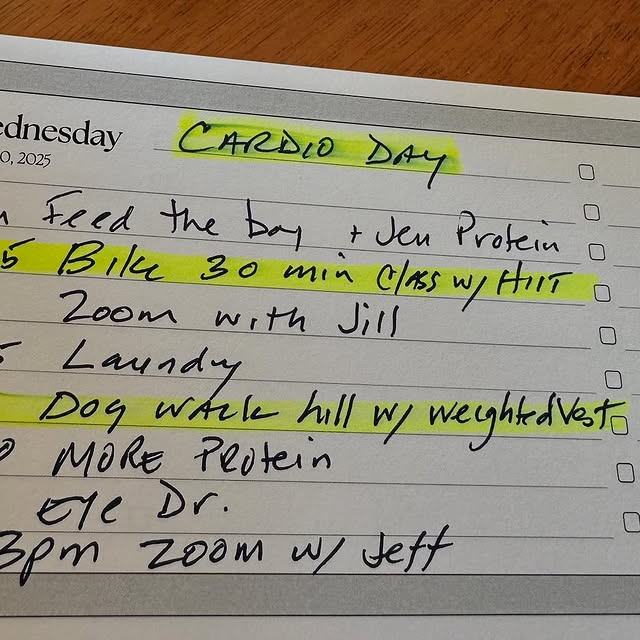 ednesday
0, 2025
CARDIO DAY
Feed the boy + Jen Protein
5 Bike 30 min Class w/ HIIT
Zoom with Jill
5 Laundry
Dog walk hill w/ weighted Vest
0 MORE Protein
Eye Dr.
3pm Zoom w/ Jeff